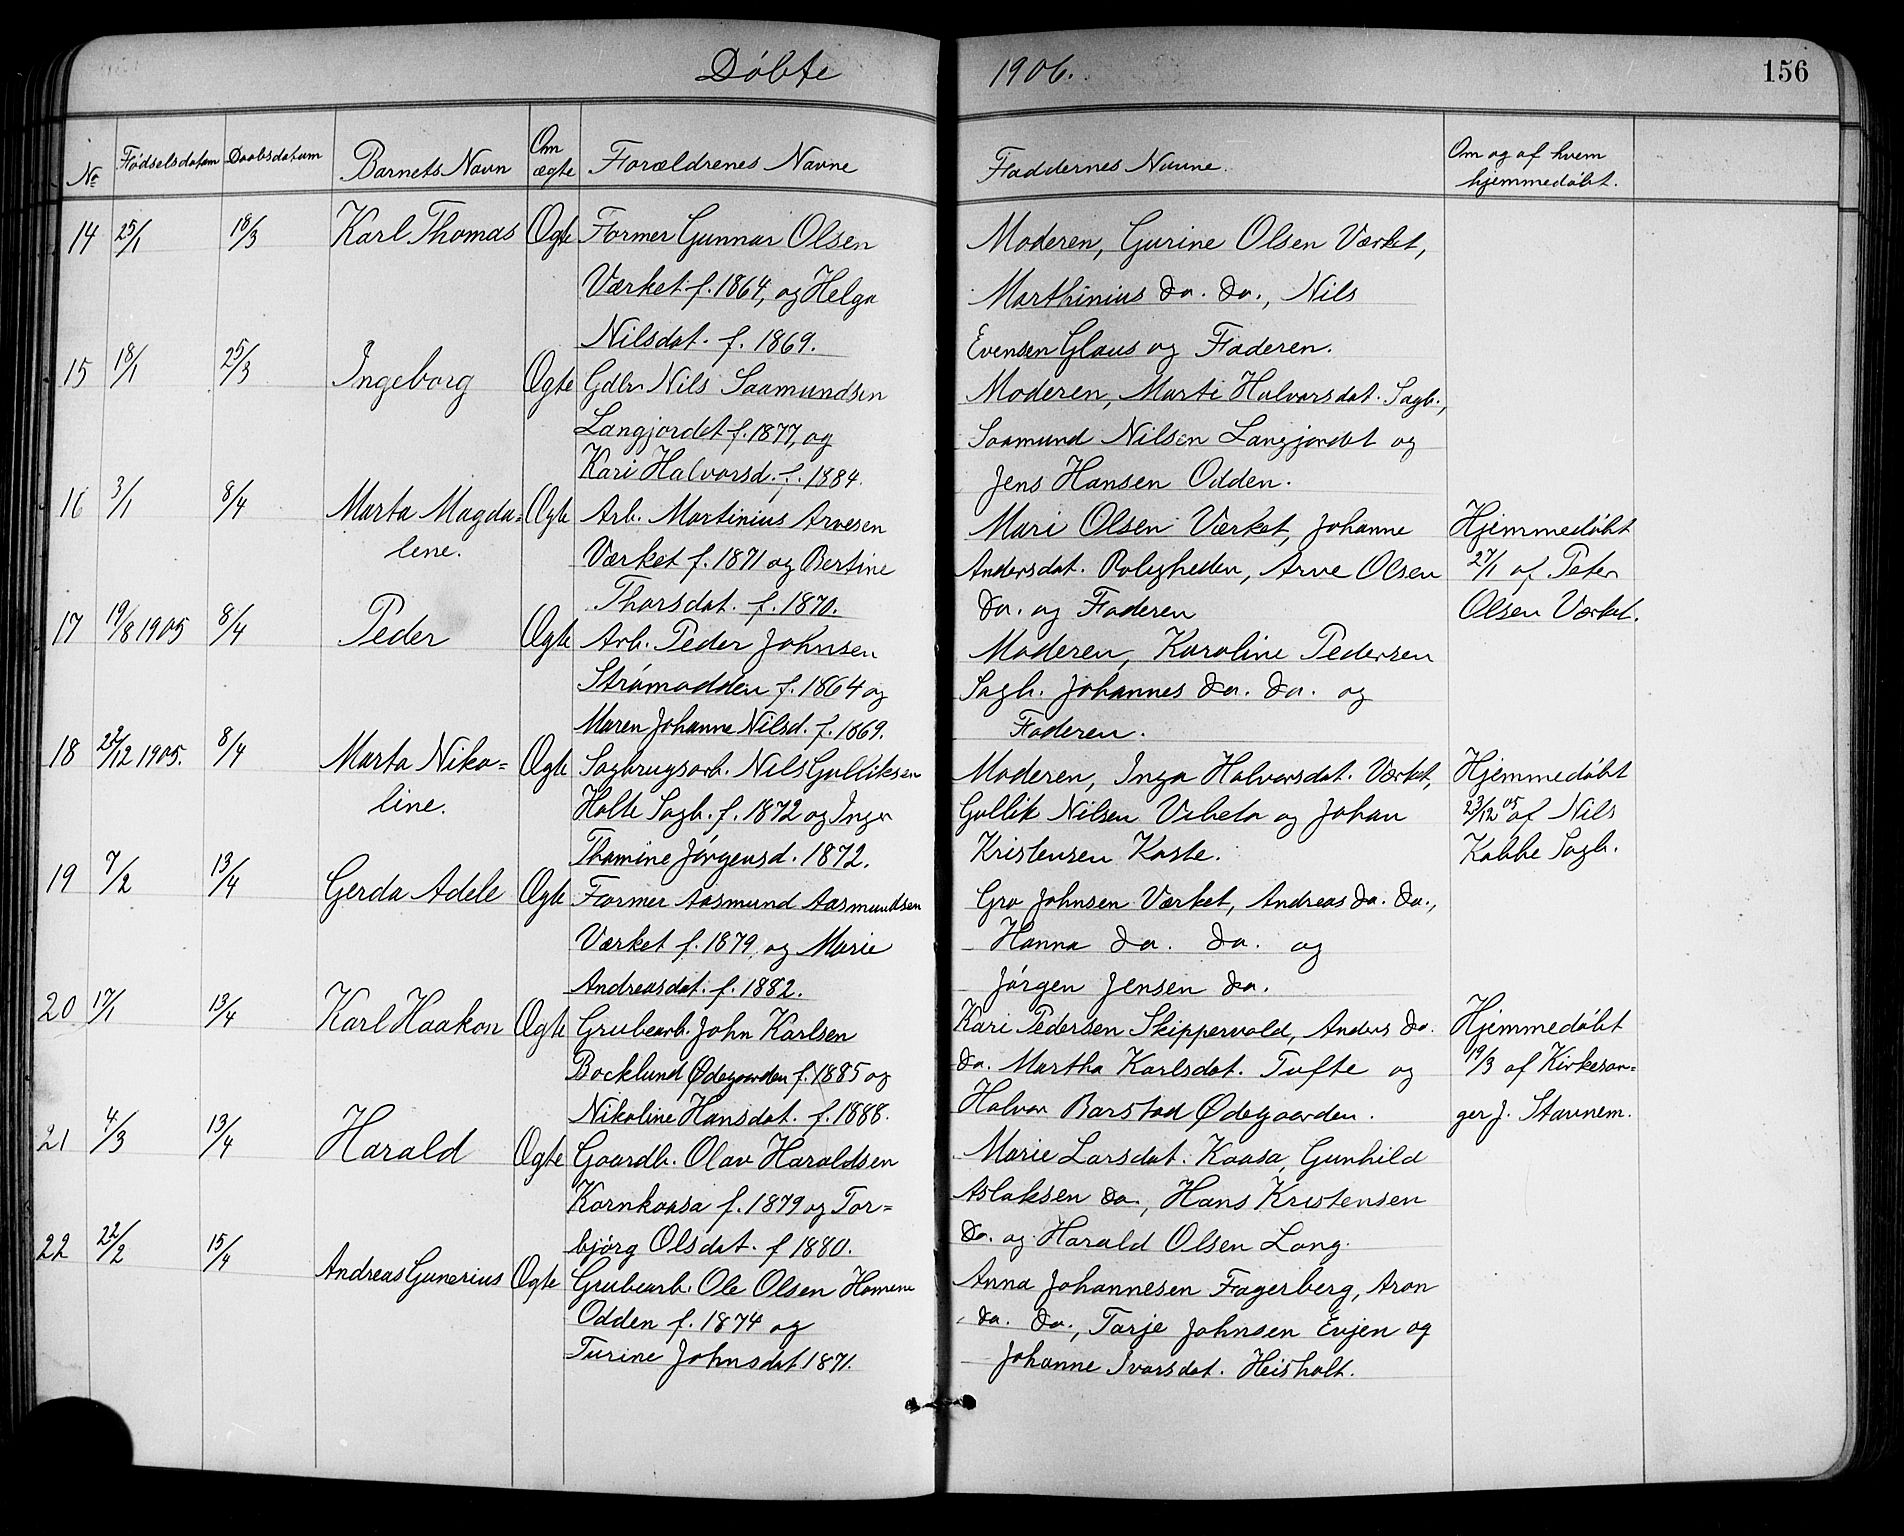 Döbte 1906. 156
No Födselsdatum Daabsdatum Barnets Navn Om ægte Forældrenes Navne Faddernes Navne. Om og af hvem hjemmedöbt.
14 25/1 18/3 Karl Thomas Ogte Former Gunnar Olsen Moderen, Gurine Olsen Værket,
Værket f. 1864, og Helga Marthinius do. do., Nils
Nilsdat. f. 1869. Evensen Glaus og Faderen.
15 18/1 25/3 Ingeborg Ogte Gdbr. Nils Saamundsen Moderen, Marti Halvorsdat. Sagb.,
Langjordet f. 1877, og Saamund Nilsen Langjordet og
Kari Halvorsd. f. 1884. Jens Hansen Odden.
16 3/1 8/4 Marta Magda= Ogte Arb. Martinius Arvesen Mari Olsen Værket, Johanne Hjemmedöbt
lene. Værket f. 1871 og Bertine Andersdat. Roligheden, Arve Olsen 27/1 af Peter
Thorsdat. f. 1870. do. og Faderen Olsen Værket.
17 19/8 1905 8/4 Peder Ogte Arb. Peder Johnsen Moderen, Karoline Pedersen
Strömodden f. 1864 og Sagb. Johannes do. do. og
Maren Johanne Nilsd. f. 1869. Faderen.
18 22/12 1905. 8/4 Marta Niko= Ogte Sagbrugsarb. Nils Gulliksen Moderen, Inga Halvorsdat. Værket, Hjemmedöbt
line. Holte Sagb. f. 1872 og Inger Gullik Nilsen Vibeto og Johan 23/12 05 af Nils
Thomine Jörgensd. 1872. Kristensen Kaste. Kabbe Sagb.
19 7/2 13/4 Gerda Adele Ogte Former Aasmund Aasmundsen Gro Johnsen Værket, Andreas do. do.,
Værket f. 1879, og Marie Hanna do. do. og
Andreasdat. f. 1882. Jörgen Jensen do.
20 17/1 13/4 Karl Haakon Ogte Grubearb. John Karlsen Kari Pedersen Skippervold, Anders do. Hjemmedöbt
Bocklund Ødegaarden f. 1885 og do. Martha Karlsdat. Tufte og 19/3 af Kirkesan=
Nikoline Hansdat. f. 1888. Halvor Barstad Ødegaarden. ger J. Stavnem.
21 4/3 13/4 Harald Ogte Gaardb. Olav Haraldsen Marie Larsdat. Kaasa, Gunhild
Kornkaasa f. 1879 og Tor= Aslaksen do., Hans Kristensen
björg Olsdat. f 1880. do. og Harald Olsen Lang.
22 22/2 15/4 Andreas Gunerius Ogte Grubearb. Ole Olsen Homene Anna Johannesen Fagerberg, Aron
Odden f. 1874 og do. do., Tarje Johnsen Evjen og
Turine Johnsdat 1871. Johanne Ivarsdat. Heisholt.